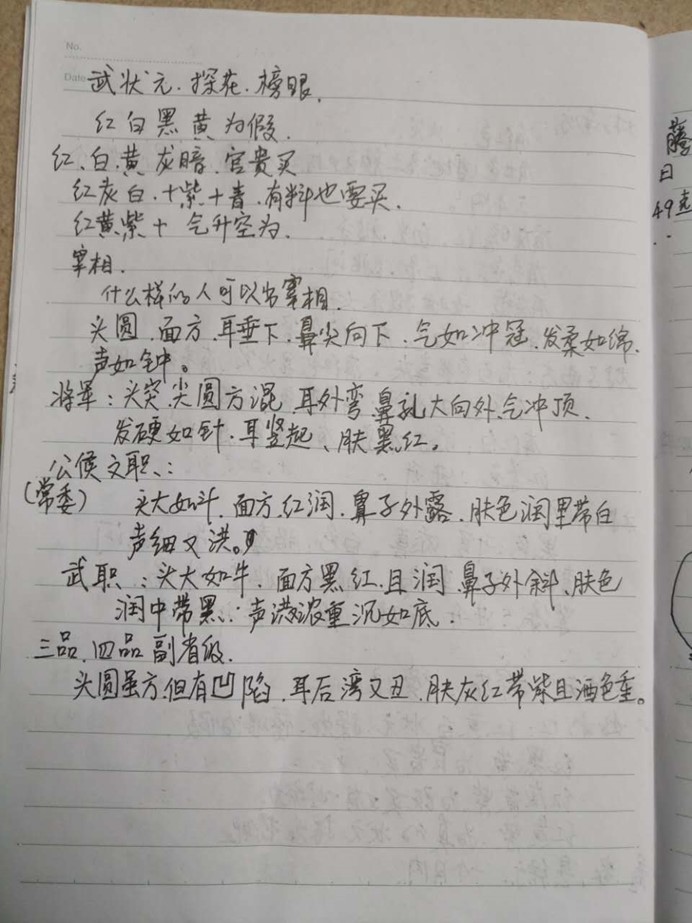 No.
Date
武状元.探花.榜眼.
红白黑黄为假.
红、白、黄龙暗、官贵买
红灰白.十紫十青.有料也要买.
红黄紫十 气升空为.
宰相.
什么样的人可以当宰相.
头圆.面方.耳垂下.鼻尖向下.气如冲冠.发柔如绵.
声如钟。
将军:头突.尖圆方混.耳外弯.鼻乳大向外.气冲顶.
发硬如针.耳竖起、肤黑红。
公候文职、:
(常委) 头大如斗.面方.红润.鼻子外露.肤色润里带白
声细又洪。
武职:头大如牛.面方黑红.且润.鼻子外斜、肤色
润中带黑、:声洪浓重沉如底.
三品.四品副省级.
头圆虽方.但有凹陷、耳后湾又丑、肤灰红带紫且酒色重。
藤
日
49克